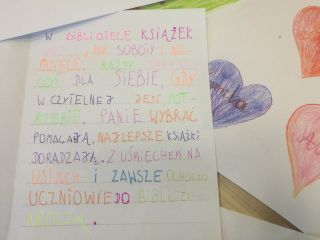 W BIBLIOTECE KSIĄŻEK
NA SOBOTY I NIE
DZIELE. KAŻDY
COŚ DLA SIEBIE, GDY
W CZYTELNEJ JEST POT-
RZEBIE. PANIE WYBRAĆ
POMAGAJĄ, NAJLEPSZE KSIĄŻKI
DORADZAJĄ. Z UŚMIECHEM NA
USTACH I ZAWSZE OCHOCZO
UCZNIOWIE DO BIBLIOTEK
KROCZĄ.